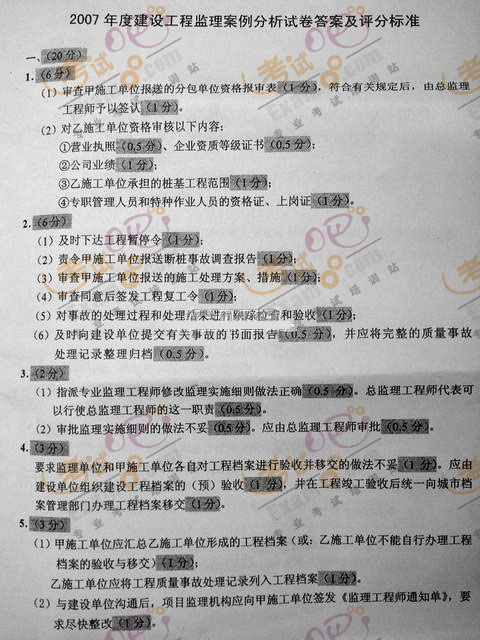 2007年度建设工程监理案例分析试卷答案及评分标准
一、(20分)
1.(6分)
(1) 审查甲施工单位报送的分包单位资格报审表(1分),符合有关规定后,由总监理
工程师予以签认(1分)。
(2) 对乙施工单位资格审核以下内容:
①营业执照(0.5分)、企业资质等级证书(0.5分);
②公司业绩(1分);
③乙施工单位承担的桩基工程范围(1分);
④专职管理人员和特种作业人员的资格证、上岗证(1分)。
2.(6分)
(1) 及时下达工程暂停令(1分);
(2) 责令甲施工单位报送断桩事故调查报告(1分);
(3) 审查甲施工单位报送的施工处理方案、措施(1分);
(4) 审查同意后签发工程复工令(1分);
(5) 对事故的处理过程和处理结果进行跟踪检查和验收(1分);
(6) 及时向建设单位提交有关事故的书面报告(0.5分),并应将完整的质量事故
处理记录整理归档(0.5分)。
3.(2分)
(1) 指派专业监理工程师修改监理实施细则做法正确(0.5分)。总监理工程师代表可
以行使总监理工程师的这一职责(0.5分)。
(2) 审批监理实施细则的做法不妥(0.5分)。应由总监理工程师审批(0.5分)。
4.(3分)
要求监理单位和甲施工单位各自对工程档案进行验收并移交的做法不妥(1分)。应由
建设单位组织建设工程档案的(预)验收(1分),并在工程竣工验收后统一向城市档
案管理部门办理工程档案移交(1分)。
5.(3分)
(1) 甲施工单位应汇总乙施工单位形成的工程档案(或:乙施工单位不能自行办理工程
档案的验收与移交)(1分);
乙施工单位应将工程质量事故处理记录列入工程档案(1分)。
(2) 与建设单位沟通后,项目监理机构应向甲施工单位签发《监理工程师通知单》,要
求尽快整改(1分)。
考试吧
Exam8.com
专业考试培训站